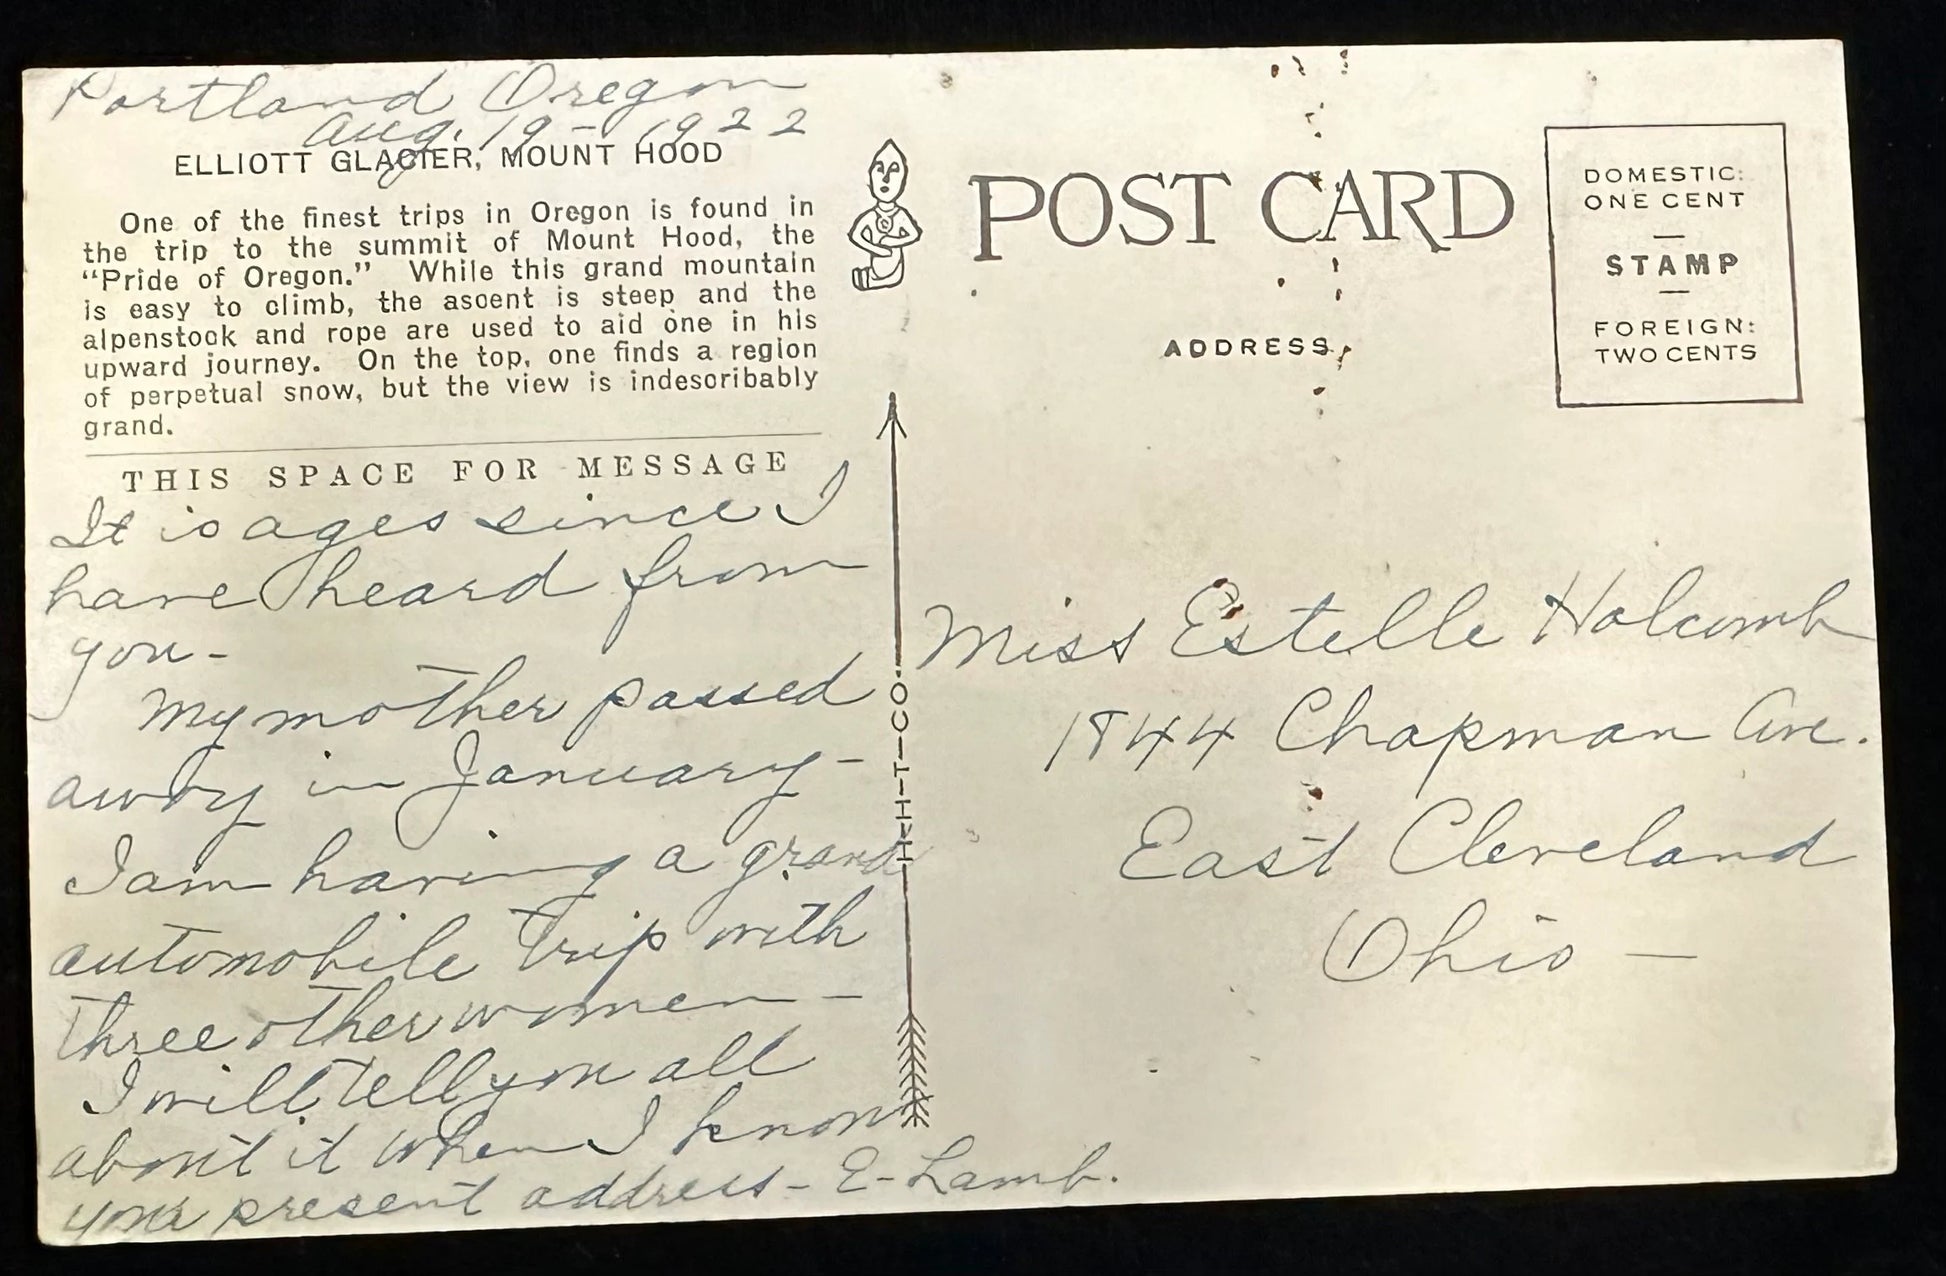 Portland Oregon
Aug. 19 - 1922
ELLIOTT GLACIER, MOUNT HOOD
One of the finest trips in Oregon is found in
the trip to the summit of Mount Hood, the
“Pride of Oregon.” While this grand mountain
is easy to climb, the ascent is steep and the
alpenstock and rope are used to aid one in his
upward journey. On the top, one finds a region
of perpetual snow, but the view is indescribably
grand.
THIS SPACE FOR MESSAGE
It is ages since I
have heard from
you -
My mother passed
away in January -
I am having a grand
automobile trip with
three other women -
I will tell you all
about it when I know
your present address - E - Lamb.
H-H-T-CO.
POST CARD
ADDRESS
DOMESTIC:
ONE CENT
STAMP
FOREIGN:
TWO CENTS
Miss Estelle Holcomb
1844 Chapman Ave.
East Cleveland
Ohio —